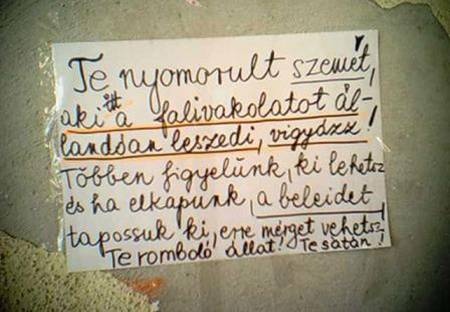 Te nyomorult szemét,
aki itt a falivakolatot ál-
landóan leszedi, vigyázz!
Többen figyelünk, ki lehetsz
és ha elkapunk, a beleidet
tapossuk ki, erre mérget vehetsz.
Te romboló állat! Te sátán!